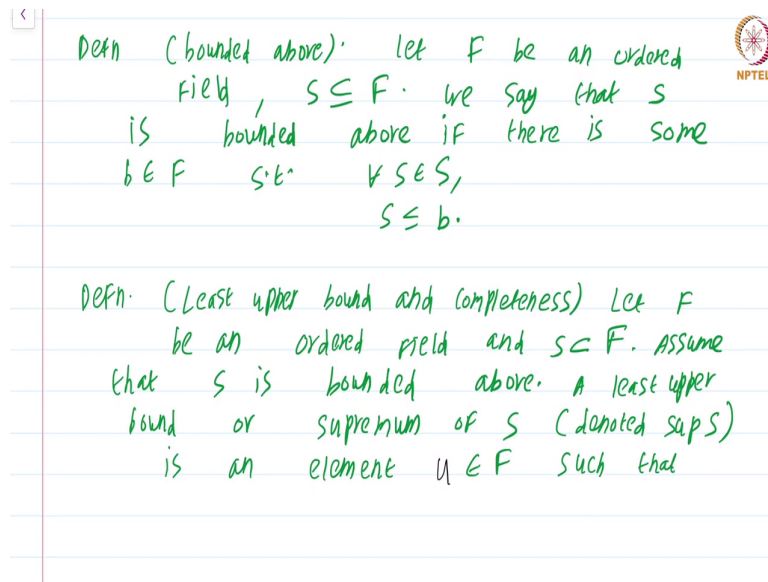 Defn (bounded above). let F be an ordered
Field, S ⊆ F. we say that S
is bounded above if there is some
b ∈ F s.t. ∀ s ∈ S,
s ≤ b.
Defn. (Least upper bound and completeness) Let F
be an ordered field and S ⊂ F. Assume
that S is bounded above. A least upper
bound or supremum of S (denoted sup S)
is an element u ∈ F such that
NPTEL